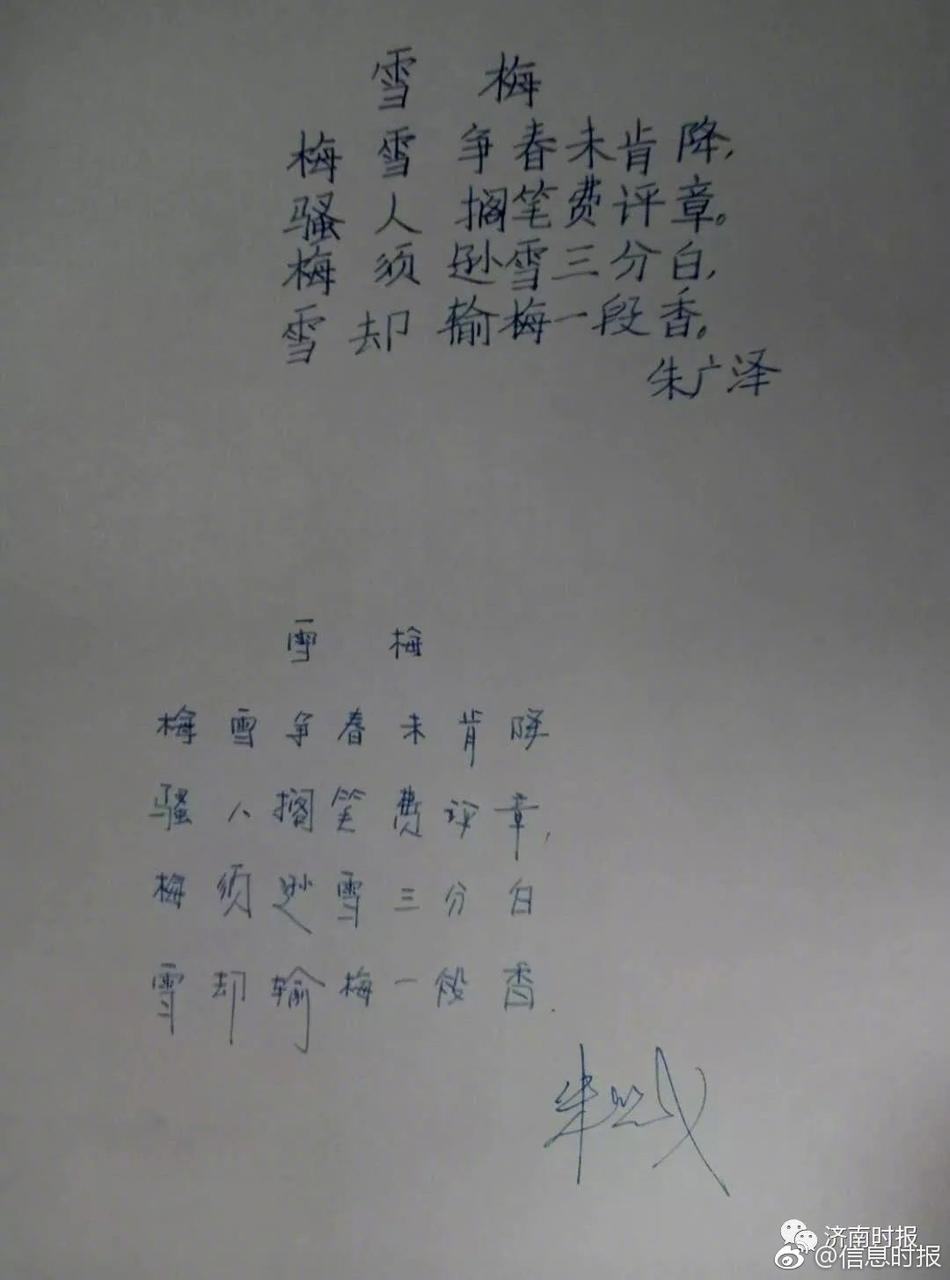 雪 梅
梅雪争春未肯降,
骚人搁笔费评章。
梅须逊雪三分白,
雪却输梅一段香。
朱广泽
雪 梅
梅雪争春未肯降
骚人搁笔费评章,
梅须逊雪三分白
雪却输梅一段香.
济南时报
@信息时报